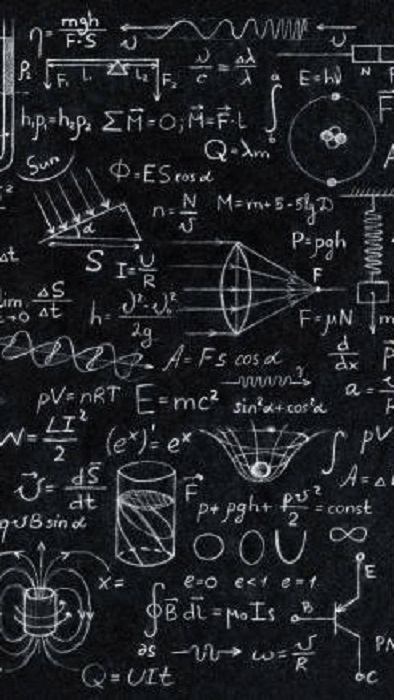 η = mgh / F·S
v v
v/c = Δλ/λ
ρ₂ F₁ L₁ L₂ F₂ a E=hν N
h₁ρ₁=h₂ρ₂ ΣM⃗=0; M⃗=F·l
Q=λm
Sun
Φ=ES cos α
n = N/v M=m+5-5lg D
α P=ρgh
S I=U/R F
lim ΔS/Δt h = v²-v₀²/2g F=μN
A=Fs cos α d/dx
pV=nRT E=mc² sin²α+cos²α a=
W=LI²/2 (eˣ)'=eˣ pV
v⃗=dS⃗/dt F⃗ A=
p+ρgh+ρv²/2=const
qvB sin α ∞
x= e=0 e<1 e=1 E
∮B⃗ dl⃗=μ₀Is B
∂S ω=v/R
Q=UIt C